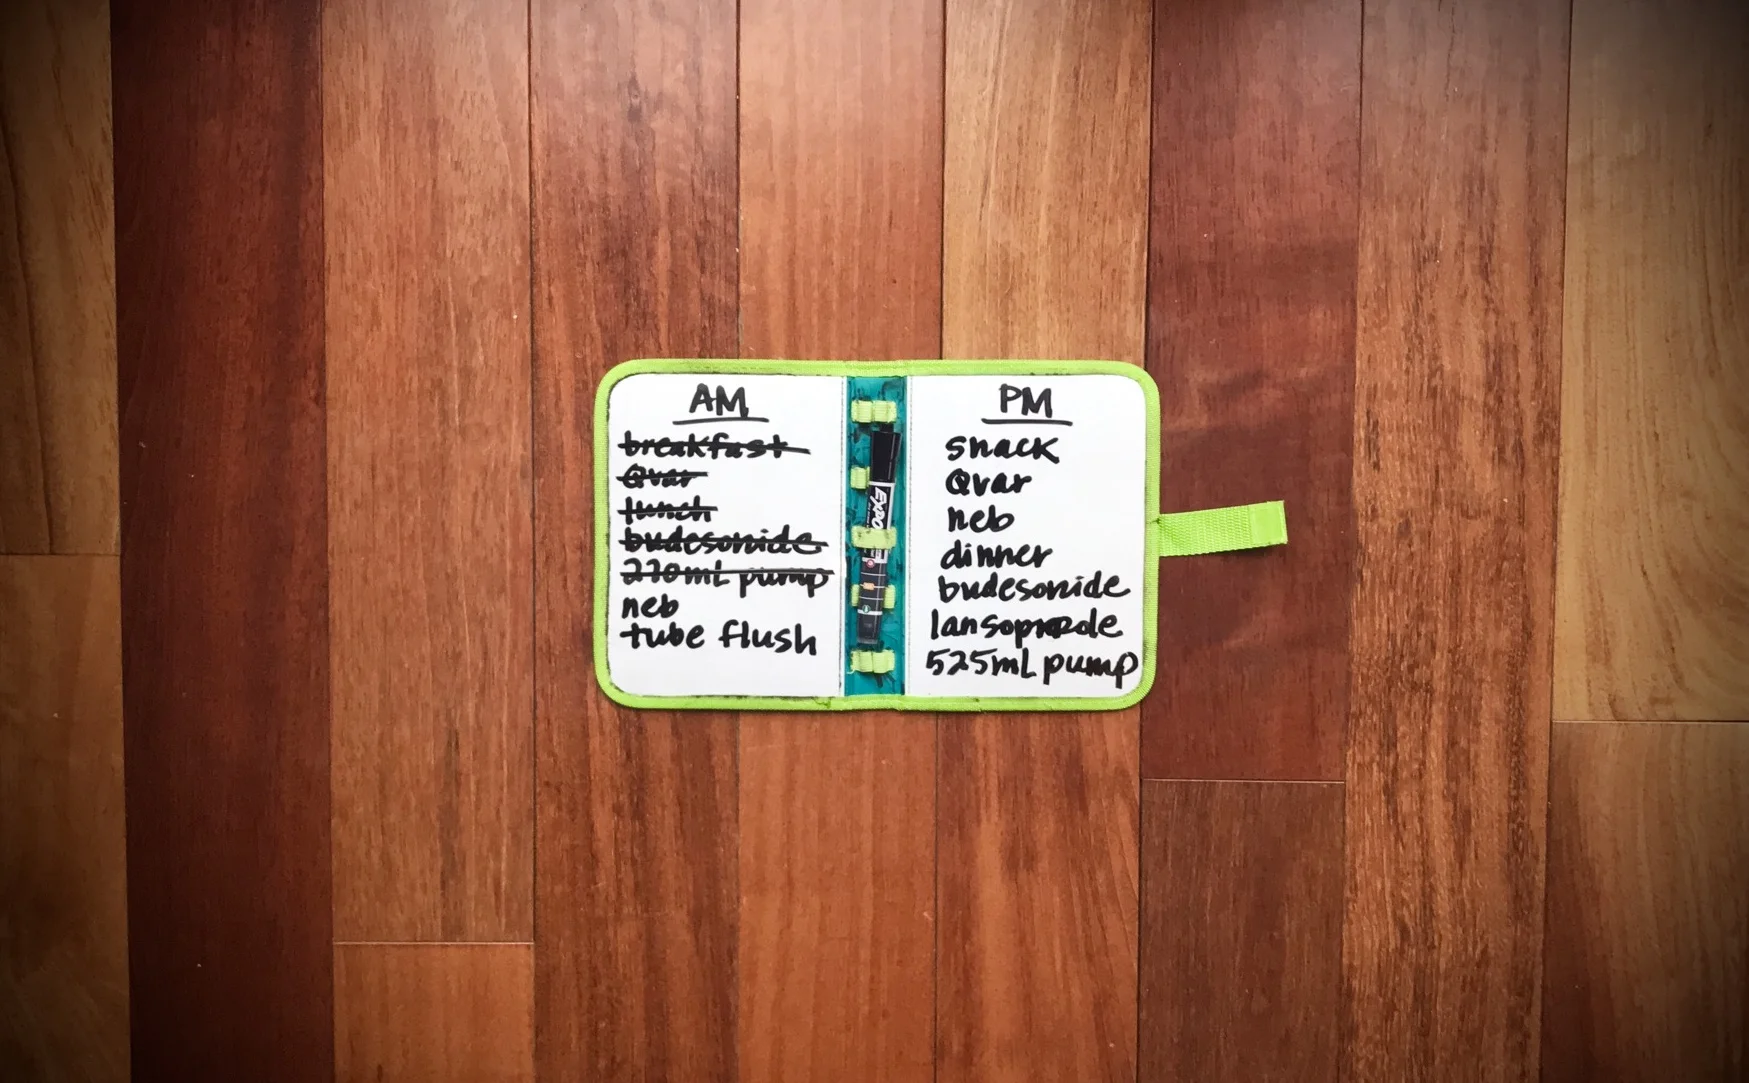 AM
breakfast
Qvar
lunch
budesonide
220mL pump
neb
tube flush
EXPO
PM
snack
Qvar
neb
dinner
budesonide
lansoprazole
525mL pump